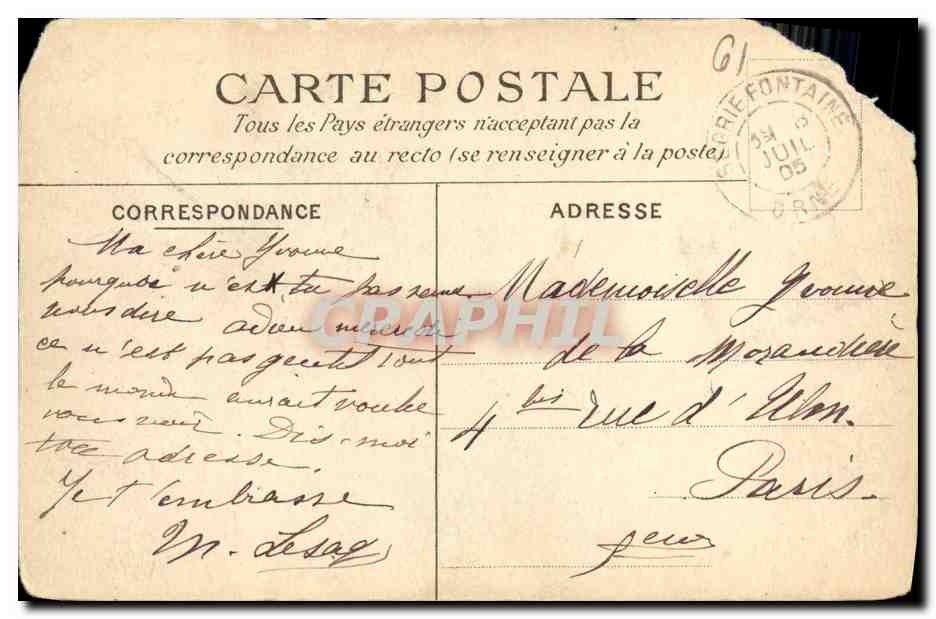 61
CARTE POSTALE
Tous les Pays étrangers n'acceptant pas la
correspondance au recto (se renseigner à la poste)
GRIEFONTAINE
JUIL
05
ORNE
CORRESPONDANCE
ADRESSE
Ma chère Yvonne
pourquoi n'est tu pas venue
nous dire adieu mercredi
ce n'est pas gentil tout
le monde aurait voulu
vous voir. Dis-moi
ton adresse.
Je t'embrasse
M. Lesage
Mademoiselle Yvonne
de la Morandière
4 bis rue d'Ulm.
Paris.
CPAPHIL